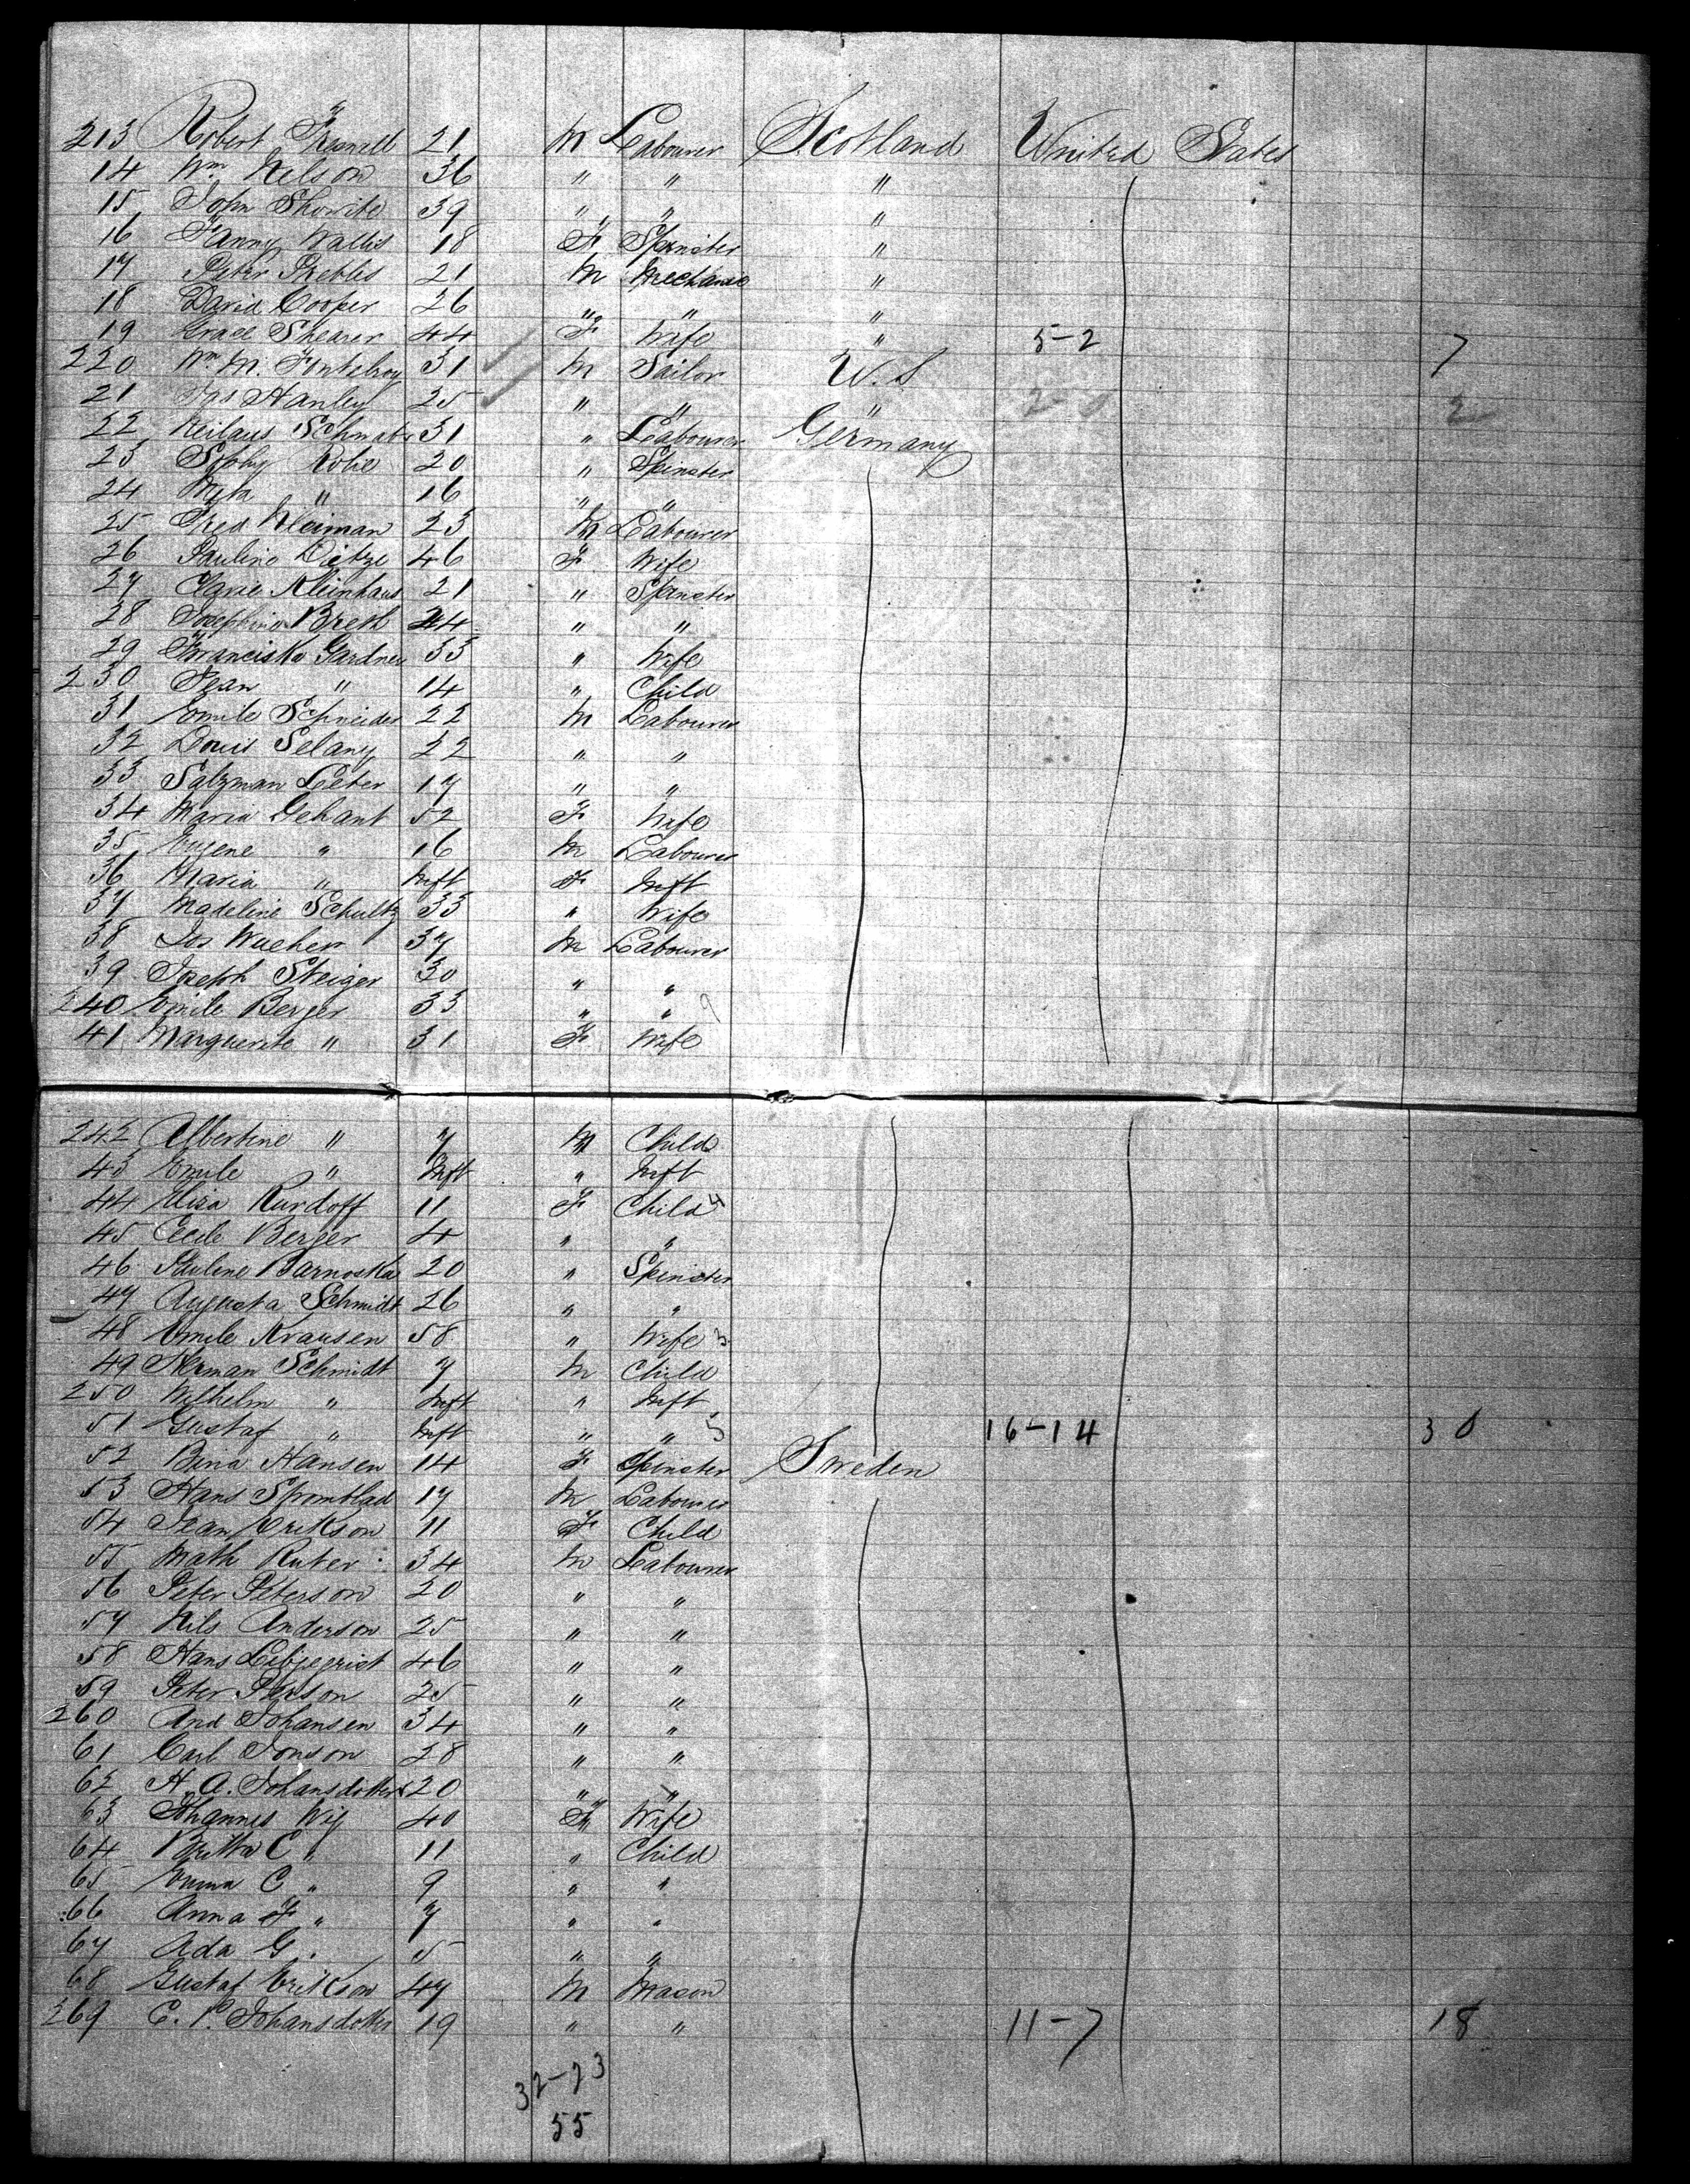 213 Robert 21 M Labourer Scotland United States
14 Wm Nelson 36 " " "
15 John Showite 39 " " "
16 Fanny Wallis 18 F Spinster "
17 Peter Peebles 21 M Mechanic "
18 David Cooper 26 " " "
19 Grace Shearer 44 F Wife " 5-2 7
220 Wm M. 31 M Sailor U.S
21 Jas Hanley 25 " " " 2-0 2
22 31 " Labourer Germany
23 Sophy 20 " Spinster
24 Meta " 16 " "
25 Fred Kleiman 23 M Labourer
26 Pauline Dietze 46 F Wife
27 Kleinhaus 21 " Spinster
28 Josephina Breth 24 " "
29 Franciska Gardner 33 " Wife
230 Jean " 14 " Child
31 Emile Schneider 22 M Labourer
32 Louis Selany 22 " "
33 Salzman 17 " "
34 Maria Gehant 52 F Wife
35 Eugene " 16 M Labourer
36 Maria " Inft F Inft
37 Madeline Schultz 33 " Wife
38 Jos Wucher 37 M Labourer
39 Joseph Steiger 30 " "
240 Emile Berger 33 " " 9
41 Marguerite " 31 F Wife
242 Albertine " 7 M Child
43 Emile " Inft " Inft
44 Elisa Kurdoff 11 F Child 4
45 Cecile Berger 4 " "
46 Pauline Barnoska 20 " Spinster
47 Augusta Schmidt 26 " "
48 Emile Krausen 58 " Wife 3
49 Herman Schmidt 7 M Child
250 Wilhelm " Inft " Inft
51 Gustaf " Inft " " 5 16-14 30
52 Bina Hansen 14 F Spinster Sweden
53 Hans Stromblad 17 M Labourer
54 Jean Erikson 11 F Child
55 Math Ruter 34 M Labourer
56 Peter Peterson 20 " "
57 Nils Anderson 25 " "
58 Hans 46 " "
59 Peter Person 25 " "
260 And Johansen 34 " "
61 Carl Jonson 28 " "
62 H. A. Johansdotter 20 " "
63 Johannes Wif 40 F Wife
64 Britta C " 11 " Child
65 Emma C " 9 " "
66 Anna F " 7 " "
67 Ada G. 5 " "
68 Gustaf Erikson 47 M Mason
269 C. P. Johansdotter 19 " " 11-7 18
32-23
55